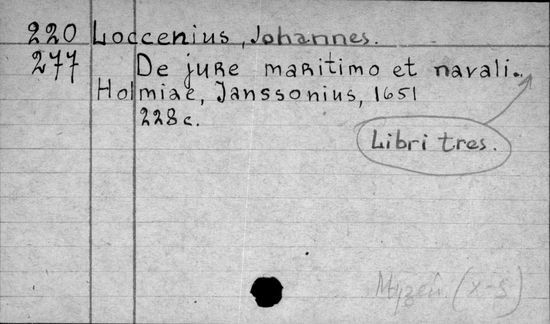 220 Loccenius, Johannes.
277 De jure maritimo et navali.
Holmiae, Janssonius, 1651
228 c.
Libri tres.
Музей (X-S)